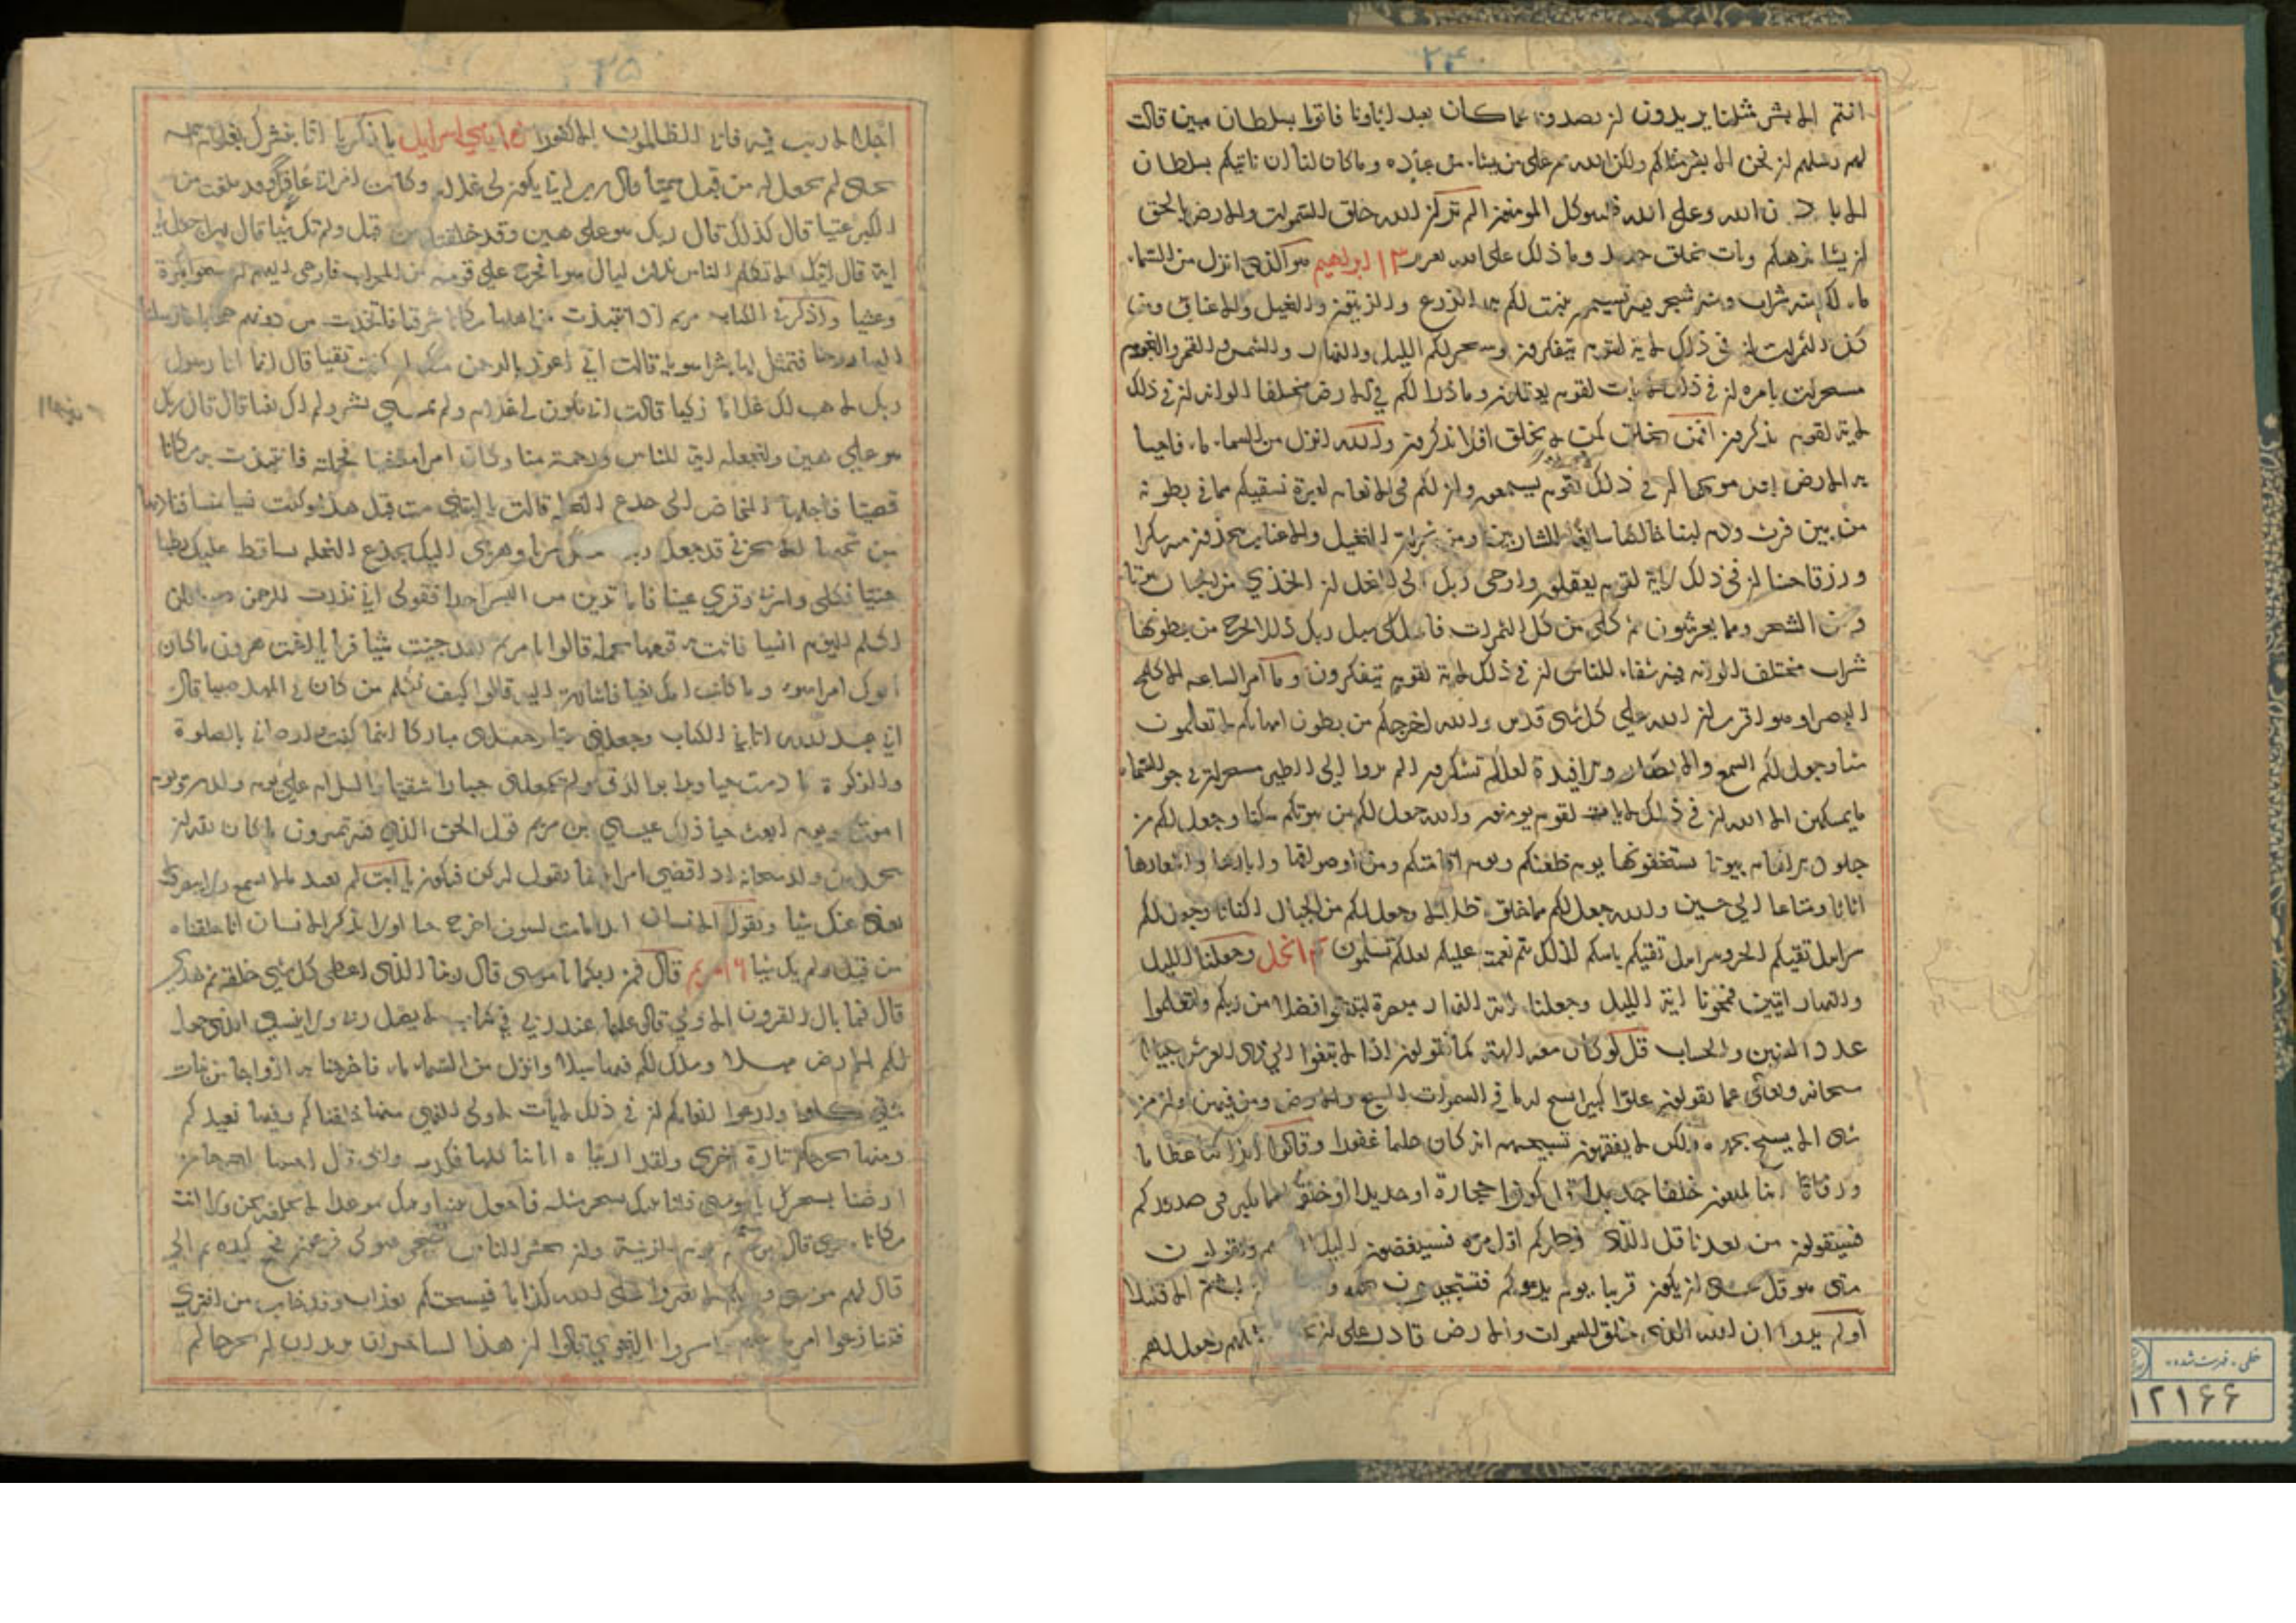 ٢٤
انتم الا بشر مثلنا يريدون ان يصدونا عما كان يعبد اباونا فاتوا بسلطان مبين قالت
لهم رسلهم ان نحن الا بشر مثلكم ولكن الله من على من يشاء من عباده وما كان لنا ان ناتيكم بسلطان
الا باذن الله وعلى الله فليتوكل المومنون الم تر ان الله خلق السموات والارض بالحق
ان يشا يذهبكم ويات بخلق جديد وما ذلك على الله بعزيز ١٣ ابراهيم هو الذي انزل من السماء
ماء لكم منه شراب ومنه شجر فيه تسيمون ينبت لكم به الزرع والزيتون والنخيل والاعناب ومن
كل الثمرات ان في ذلك لاية لقوم يتفكرون وسخر لكم الليل والنهار والشمس والقمر والنجوم
مسخرات بامره ان في ذلك لايات لقوم يعقلون وما ذرا لكم في الارض مختلفا الوانه ان في ذلك
لاية لقوم يذكرون افمن يخلق كمن لا يخلق افلا تذكرون والله انزل من السماء ماء فاحيا
به الارض بعد موتها ان في ذلك لقوم يسمعون وان لكم في الانعام لعبرة نسقيكم مما في بطونه
من بين فرث ودم لبنا خالصا سائغا للشاربين ومن ثمرات النخيل والاعناب تتخذون منه سكرا
ورزقا حسنا ان في ذلك لاية لقوم يعقلون واوحى ربك الى النحل ان اتخذي من الجبال بيوتا
ومن الشجر ومما يعرشون ثم كلي من كل الثمرات فاسلكي سبل ربك ذللا يخرج من بطونها
شراب مختلف الوانه فيه شفاء للناس ان في ذلك لاية لقوم يتفكرون وما امر الساعة الا كلمح
البصر او هو اقرب ان الله على كل شى قدير والله اخرجكم من بطون امهاتكم لا تعلمون
شيا وجعل لكم السمع والابصار والافيدة لعلكم تشكرون الم يروا الى الطير مسخرات في جو السماء
ما يمسكهن الا الله ان في ذلك لايات لقوم يومنون والله جعل لكم من بيوتكم سكنا وجعل لكم من
جلود الانعام بيوتا تستخفونها يوم ظعنكم ويوم اقامتكم ومن اصوافها واوبارها واشعارها
اثاثا ومتاعا الى حين والله جعل لكم مما خلق ظلالا وجعل لكم من الجبال اكنانا وجعل لكم
سرابيل تقيكم الحر وسرابيل تقيكم باسكم كذلك يتم نعمته عليكم لعلكم تسلمون النحل وجعلنا الليل
والنهار ايتين فمحونا اية الليل وجعلنا اية النهار مبصرة لتبتغوا فضلا من ربكم ولتعلموا
عدد السنين والحساب قل لو كان معه الهة كما يقولون اذا لابتغوا الى ذى العرش سبيلا
سبحانه وتعالى عما يقولون علوا كبيرا تسبح له ما في السموات السبع والارض ومن فيهن وان من
شى الا يسبح بحمده ولكن لا يفقهون تسبيحهم انه كان حليما غفورا وقالوا ائذا كنا عظاما
ورفاتا انا لمبعوثون خلقا جديدا قل كونوا حجارة او حديدا او خلقا مما يكبر في صدوركم
فسيقولون من يعيدنا قل الذي فطركم اول مرة فسينغضون اليك ويقولون
متى هو قل عسى ان يكون قريبا يوم يدعوكم فتستجيبون بحمده لبثتم الا قليلا
اولم يروا ان الله الذي خلق السموات والارض قادر على ان وجعل لهم
٢٥
اجلا لا ريب فيه فابى الظالمون الا كفورا بني اسرائيل يا زكريا انا نبشرك بغلام اسمه
يحيى لم نجعل له من قبل سميا قال رب انى يكون لي غلام وكانت امراتي عاقرا وقد بلغت من
الكبر عتيا قال كذلك قال ربك هو على هين وقد خلقتك من قبل ولم تك شيا قال رب اجعل لي
اية قال ايتك الا تكلم الناس ثلث ليال سويا فخرج على قومه من المحراب فاوحى اليهم ان سبحوا بكرة
وعشيا واذكر في الكتاب مريم اذ انتبذت من اهلها مكانا شرقيا فاتخذت من دونهم حجابا فارسلنا
اليها روحنا فتمثل لها بشرا سويا قالت اني اعوذ بالرحمن منك ان كنت تقيا قال انما انا رسول
ربك لاهب لك غلاما زكيا قالت انى يكون لي غلام ولم يمسسني بشر ولم اك بغيا قال قال ربك
هو على هين ولنجعله اية للناس ورحمة منا وكان امرا مقضيا فحملته فانتبذت به مكانا
قصيا فاجاءها المخاض الى جذع النخلة قالت يا ليتني مت قبل هذا وكنت نسيا منسيا فناداها
من تحتها الا تحزني قد جعل ربك سريا وهزي اليك بجذع النخلة تساقط عليك رطبا
جنيا فكلي واشربي وقري عينا فاما ترين من البشر احدا فقولي اني نذرت للرحمن صوما فلن
اكلم اليوم انسيا فاتت به قومها تحمله قالوا يا مريم لقد جئت شيا فريا يا اخت هرون ما كان
ابوك امرا سوء وما كانت امك بغيا فاشارت اليه قالوا كيف نكلم من كان في المهد صبيا قال
اني عبد الله اتاني الكتاب وجعلني نبيا وجعلني مباركا اينما كنت واوصاني بالصلوة
والزكوة ما دمت حيا وبرا بوالدتي ولم يجعلني جبارا شقيا والسلام علي يوم ولدت ويوم
اموت ويوم ابعث حيا ذلك عيسى بن مريم قول الحق الذي فيه تمترون ما كان لله ان
يتخذ من ولد سبحانه اذا قضى امرا فانما يقول له كن فيكون يا ابت لم تعبد ما لا يسمع ولا يبصر ولا
يغني عنك شيا ويقول الانسان ائذا ما مت لسوف اخرج حيا اولا يذكر الانسان انا خلقناه
من قبل ولم يك شيا ١٦ مريم قال فمن ربكما يا موسى قال ربنا الذي اعطى كل شي خلقه ثم هدى
قال فما بال القرون الاولى قال علمها عند ربي في كتاب لا يضل ربي ولا ينسى الذي جعل
لكم الارض مهدا وسلك لكم فيها سبلا وانزل من السماء ماء فاخرجنا به ازواجا من نبات
شتى كلوا وارعوا انعامكم ان في ذلك لايات لاولي النهى منها خلقناكم وفيها نعيدكم
ومنها نخرجكم تارة اخرى ولقد اريناه اياتنا كلها فكذب وابى قال اجئتنا لتخرجنا من
ارضنا بسحرك يا موسى فلناتينك بسحر مثله فاجعل بيننا وبينك موعدا لا نخلفه نحن ولا انت
مكانا سوى قال موعدكم يوم الزينة وان يحشر الناس ضحى فتولى فرعون فجمع كيده ثم اتى
قال لهم موسى ويلكم لا تفتروا على الله كذبا فيسحتكم بعذاب وقد خاب من افترى
فتنازعوا امرهم واسروا النجوى قالوا ان هذا لساحران يريدان ان يخرجاكم
خطى . فهرست شده .
١٢١٦٦